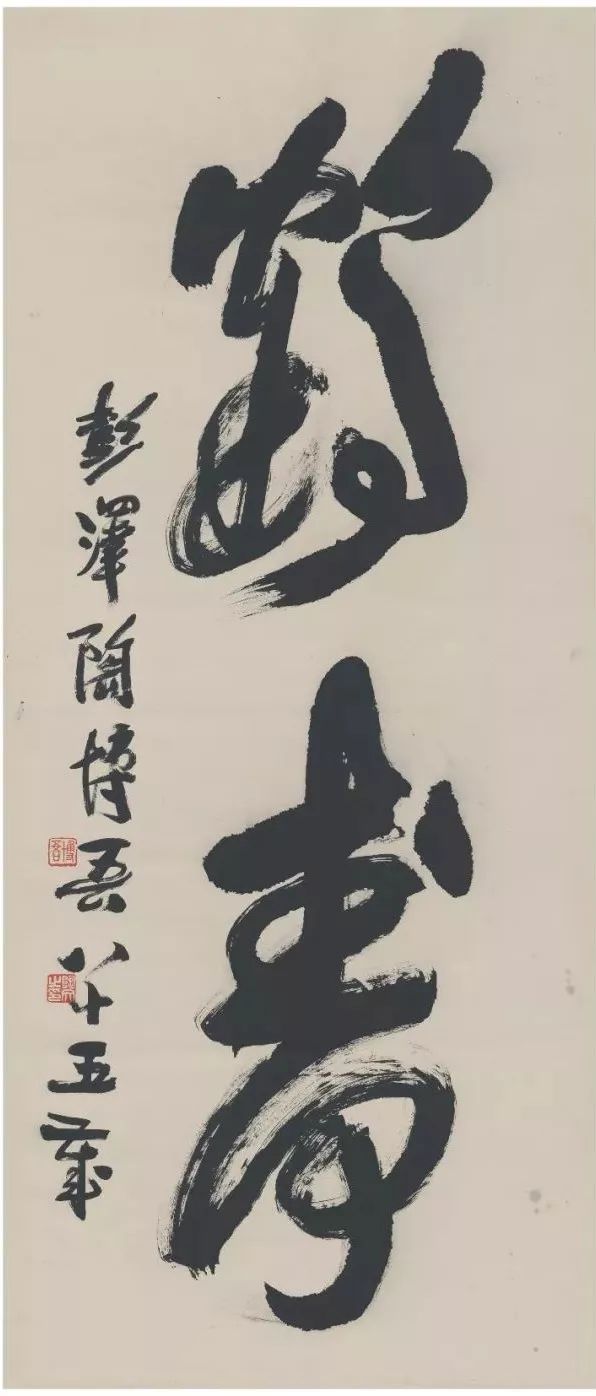 鶴壽
彭澤陶博吾八十五歲
博吾